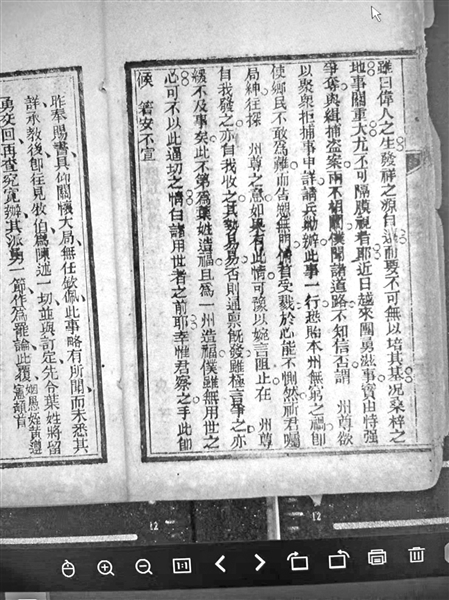 雖曰偉人之生發祥之源自遠而要不可無以培其基况桑梓之
地事關重大尤不可隔膜視者耶近日越來鬭勇滋事實由恃强
爭奪與緝捕盗案兩不相關僕聞諸道路不知信否謂 州尊欲
以聚衆拒捕事申詳請兵勦辦此事一行恐貽本州無窮之禍卽
使鄉民不敢爲難而苦愬無門情受戮於心能不惻然祈君囑
局紳往探 州尊之意如果有此情可豫以婉言阻止在 州尊
自我發之亦自我收之其勢易易否則通禀既發雖極言爭之亦
緩不及事矣此不第爲葉姓造福且爲一州造福僕雖無用世之
心可不以此逼切之情白諸用世者之前耶幸惟君察之手此卽
候 箸安不宣
昨奉 賜書具仰關懷大局無任欽佩此事略有所聞而未悉其
詳承教後卽往見敘伯爲陳述一切並與訂定先令葉姓將留
勇交回再查究寬辦其派勇一節作爲罷論此覆 姻愚姪黄遵
憲頓首
12
12
1:1